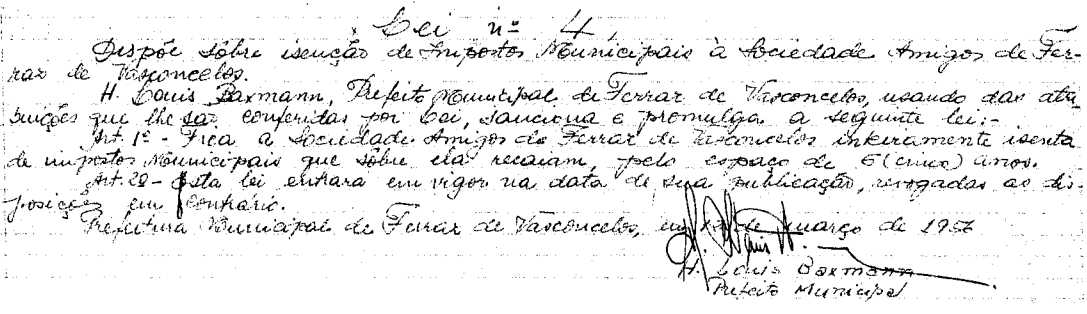 Lei nº 4.
Dispõe sôbre isenção de Impostos Municipais à Sociedade Amigos de Fer-
raz de Vasconcelos.
H. Louis Baxmann, Prefeito Municipal de Ferraz de Vasconcelos, usando das atri
buições que lhe são conferidas por lei, sanciona e promulga a seguinte lei:-
Art. 1º - Fica a Sociedade Amigos de Ferraz de Vasconcelos inteiramente isenta
de impostos Municipais que sôbre ela recaiam, pelo espaço de 5 (cinco) anos.
Art. 2º - Esta lei entrará em vigor na data de sua publicação, revogadas as dis-
posições em contrário.
Prefeitura Municipal de Ferraz de Vasconcelos, em de março de 195
H. Louis Baxmann
Prefeito Municipal